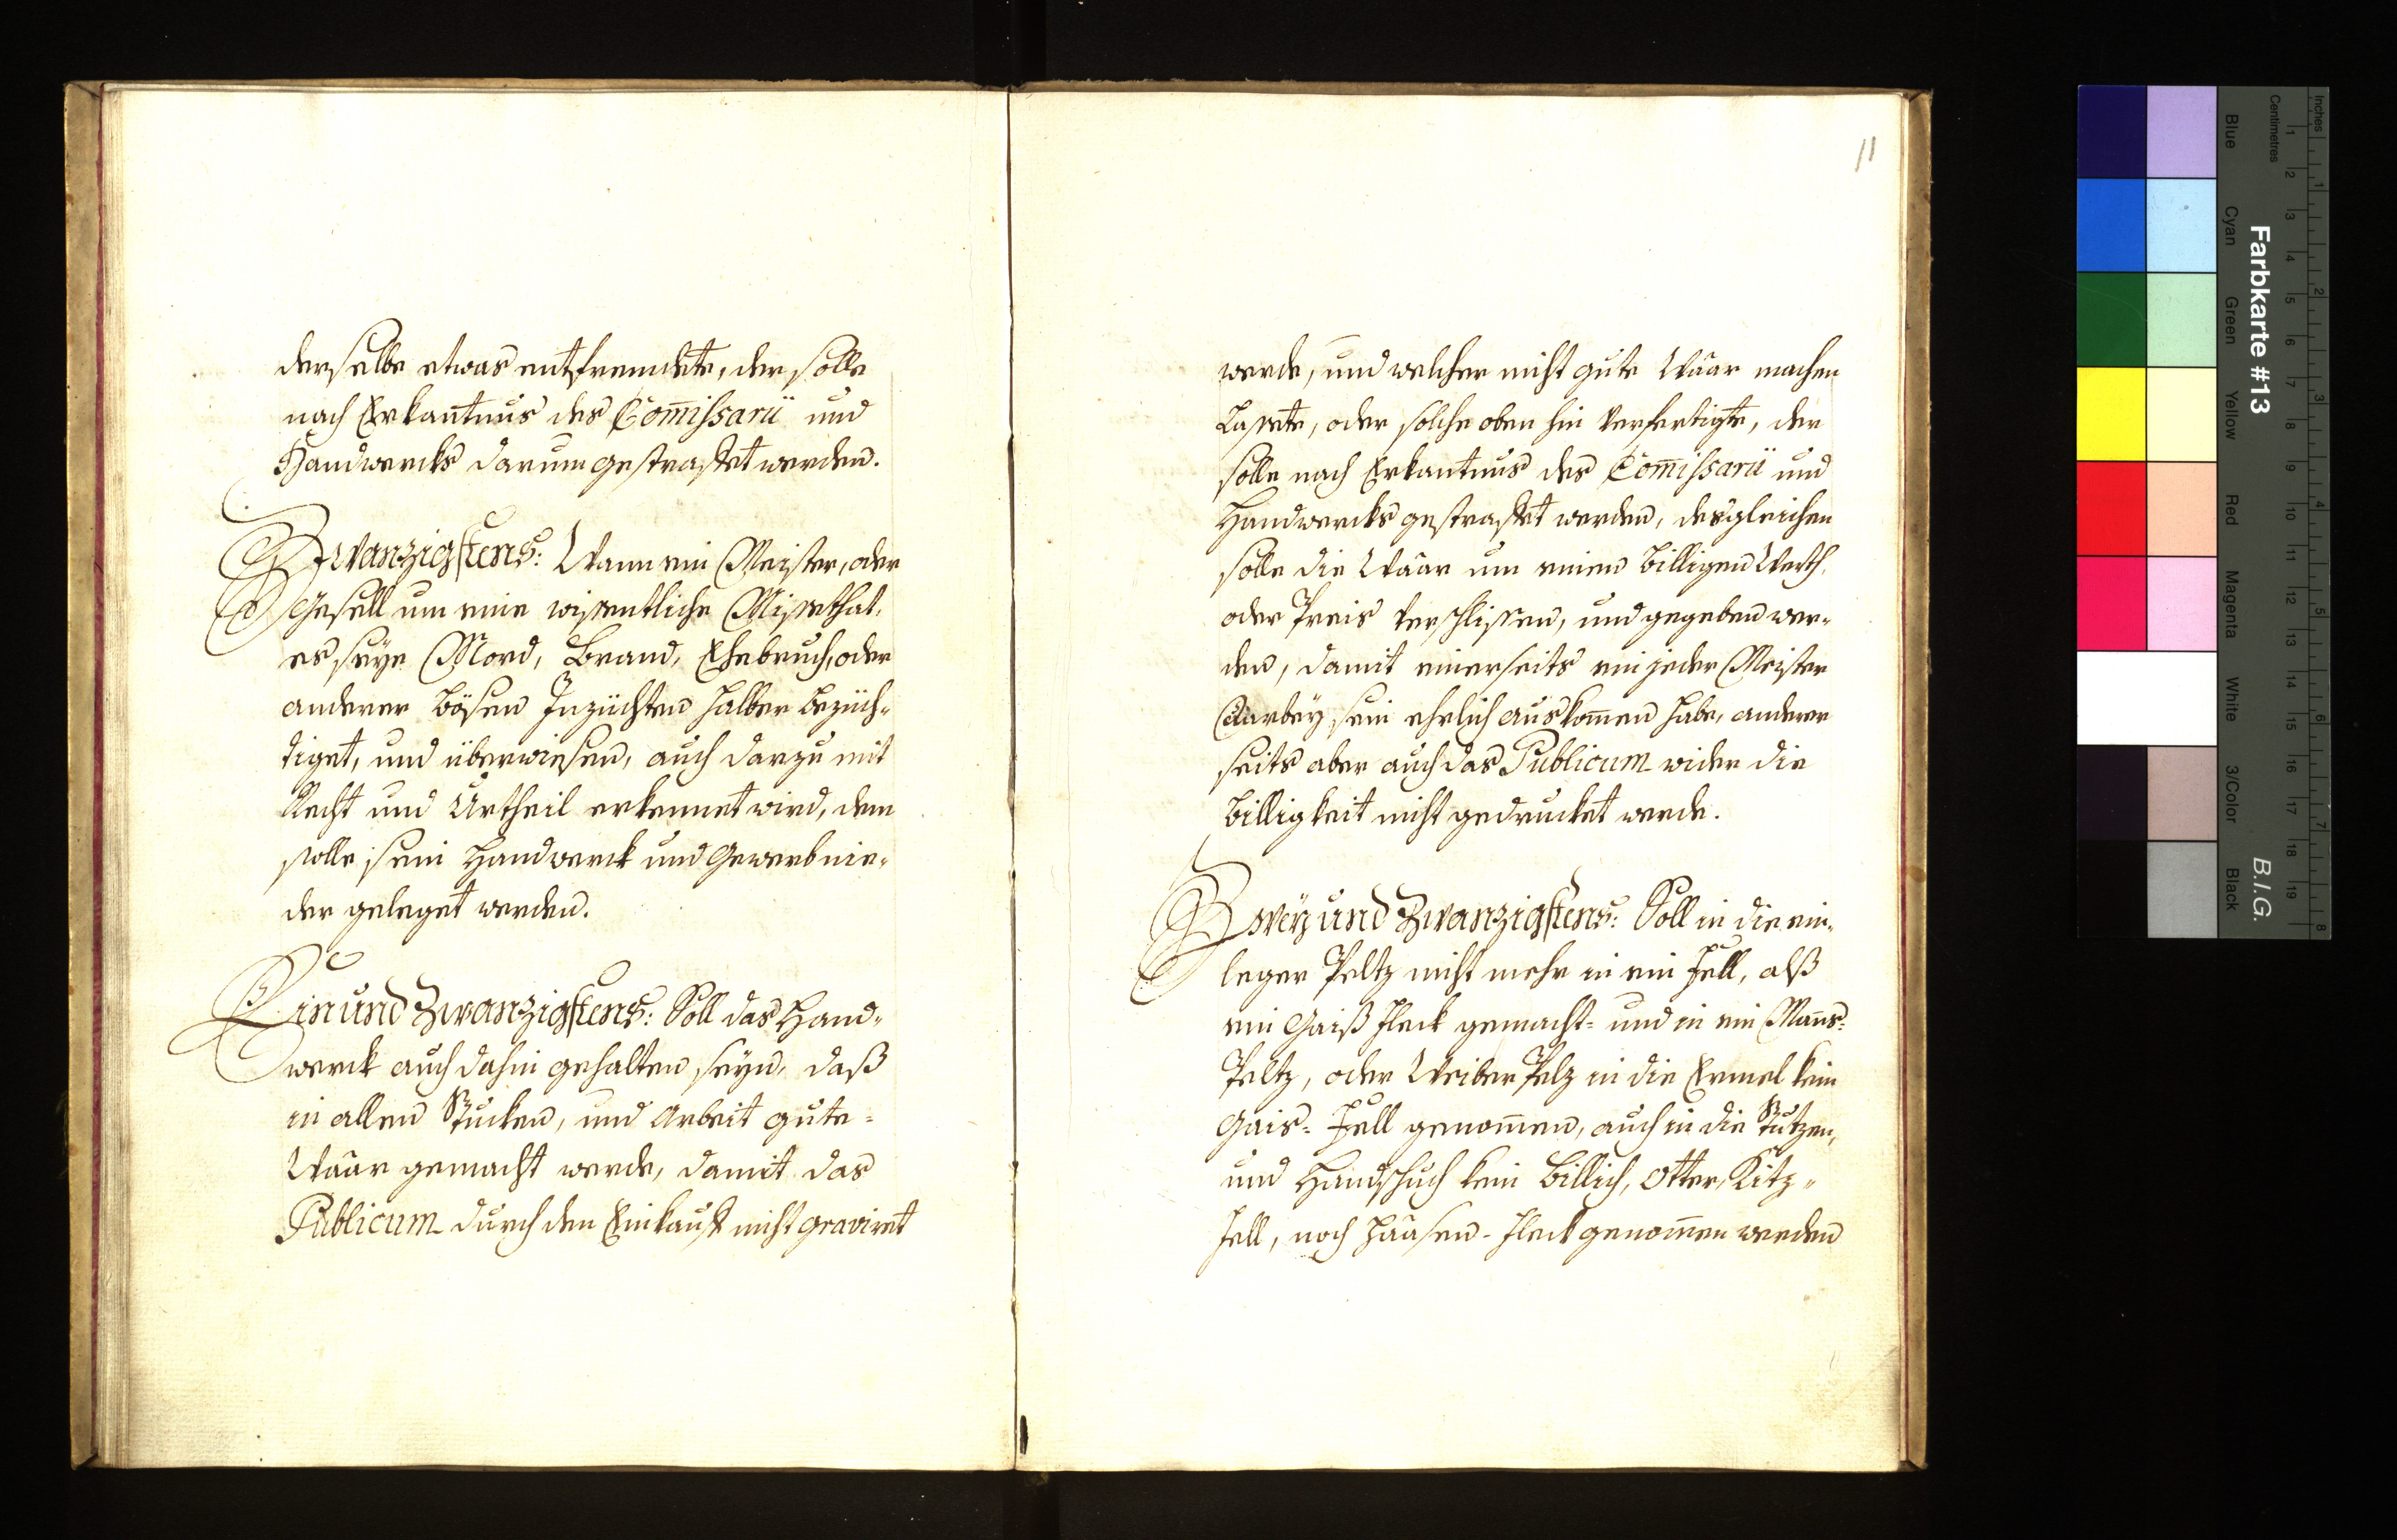 derselbe etwas entfremdete, der solle
nach Erkantnus des Com̅issarii und
Handwercks darum gestraffet werden.
Zwanzigstens: Wann ein Meister, oder
Gesell um eine wissentliche Missethat,
es seye Mord, Brand, Ehebruch, oder
anderer bösen Inzüchten halber bezüch-
tiget, und überwiesen, auch darzu mit
Recht und Urtheil erkennet wird, dem
solle sein Handwerck und Gewerb nie-
der geleget werden.
Ein und Zwanzigstens: Soll das Hand-
werck auch dahin gehalten seyn, daß
in allen Stucken, und Arbeit gute
Waar gemacht werde, damit das
Publicum durch den Einkauff nicht graviret
11
werde, und welcher nicht gute Waar machen
Lassete, oder solche oben hin verfertigte, der
solle nach Erkantnus des Com̅issarii und
Handwercks gestraffet werden, desgleichen
solle die Waar um einen billigen Werth,
oder Preis verschlissen, und gegeben wer-
den, damit einerseits ein jeder Meister
darbey sein ehrlich auskom̅en habe, anderer
seits aber auch das Publicum wider die
Billigkeit nicht gedrucket werde.
Zwey und Zwanzigstens: Soll in die ein-
leger Peltz nicht mehr in ein Fell, alß
ein Gaiß Fleck gemacht- und in ein Man̅s-
Peltz, oder Weiber Pelz in die Ermel kein
Gais-Fell genom̅en, auch in die Stutzen,
und Handschuch kein Billich, Otter, Kitz-
Fell, noch Haasen-Fleck genom̅en werden
Inches
Centimetres
Farbkarte #13
B.I.G.
Blue
Cyan
Green
Yellow
Red
Magenta
White
3/Color
Black